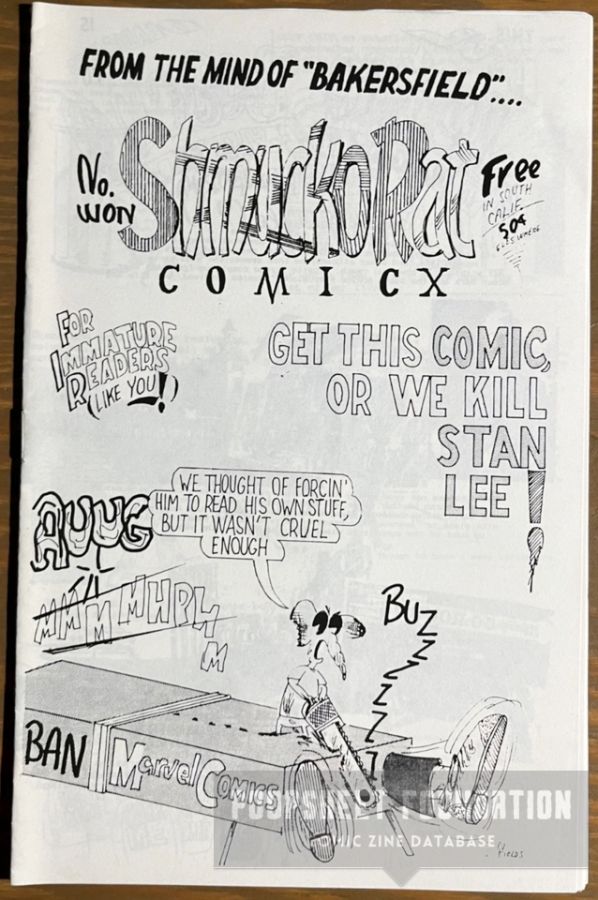 FROM THE MIND OF "BAKERSFIELD"....
No.
WON
ShmuckoRat
COMICX
Free
IN SOUTH
CALIF.
50¢
FOR
IMMATURE
READERS
(LIKE YOU!)
GET THIS COMIC,
OR WE KILL
STAN
LEE!
WE THOUGHT OF FORCIN'
HIM TO READ HIS OWN STUFF,
BUT IT WASN'T CRUEL
ENOUGH
AUUG
MMMMHPH
M
BUZZZZZZZ
BAN
MARVEL COMICS
POOPSHEET FOUNDATION
COMIC ZINE DATABASE
FIELDS